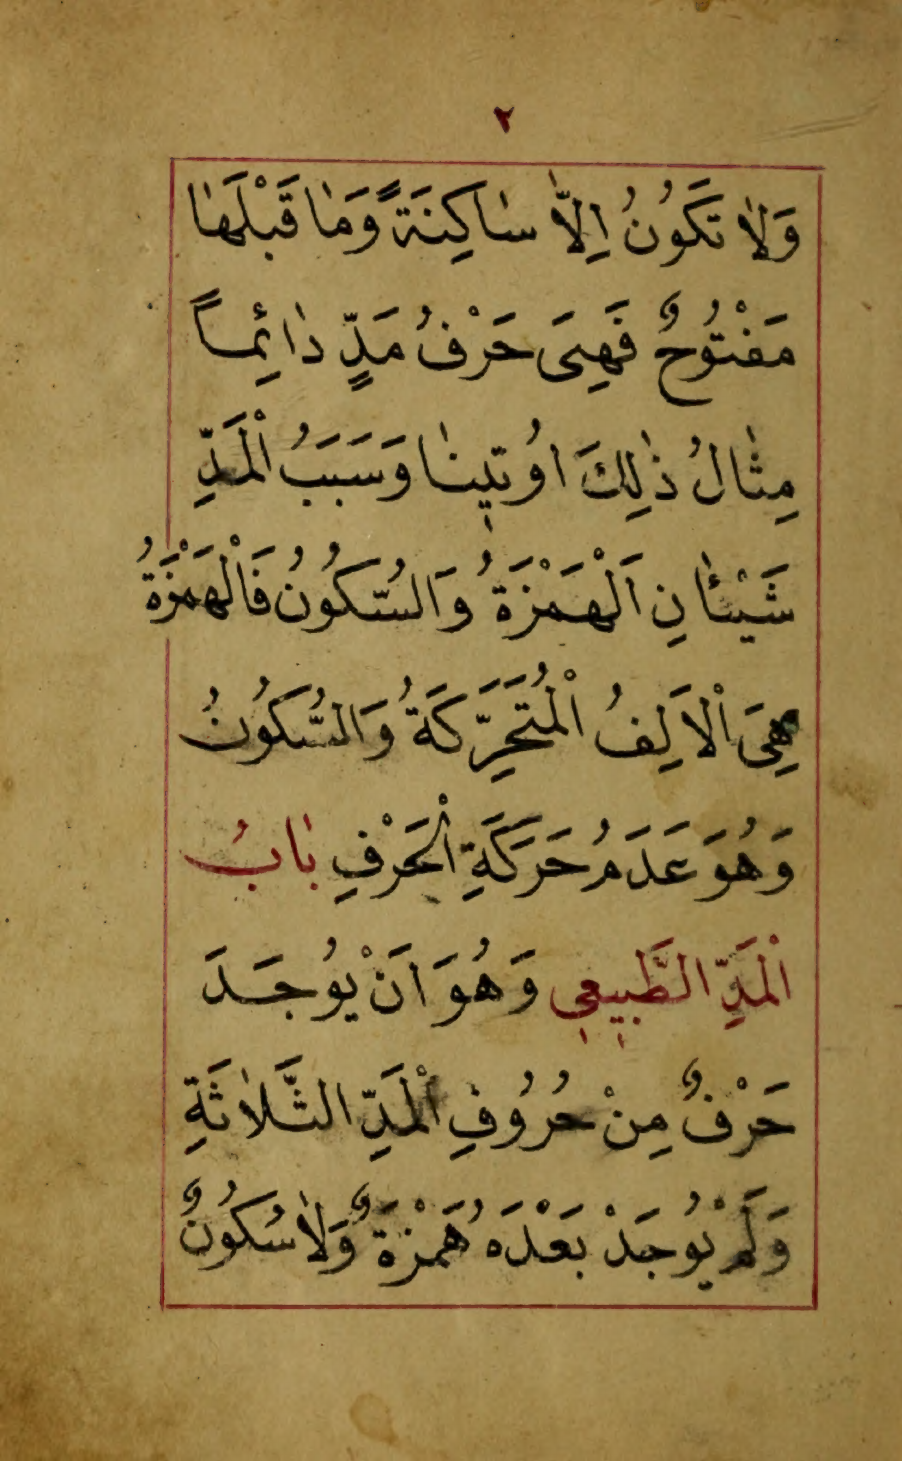 ٢
وَلاٰ تَكُونُ اِلاّٰ سٰاكِنَةً وَمٰا قَبْلَهٰا
مَفْتُوحٌ فَهِىَ حَرْفُ مَدٍّ دٰائِماً
مِثٰالُ ذٰلِكَ اوُتيٖنٰا وَسَبَبُ الْمَدِّ
شَيْئٰانِ اَلْهَمْزَةُ وَالسُّكُونُ فَالْهَمْزَةُ
هِىَ الْاَلِفُ الْمُتَحَرِّكَةُ وَالسُّكُونُ
وَهُوَ عَدَمُ حَرَكَةِ الْحَرْفِ بٰابُ
الْمَدِّ الطَّبيٖعىٖ وَهُوَ اَنْ يُوجَدَ
حَرْفٌ مِنْ حُرُوفِ الْمَدِّ الثَّلاٰثَةِ
وَلَمْ يُوجَدْ بَعْدَهُ هَمْزَةٌ وَلاٰ سُكُونٌ